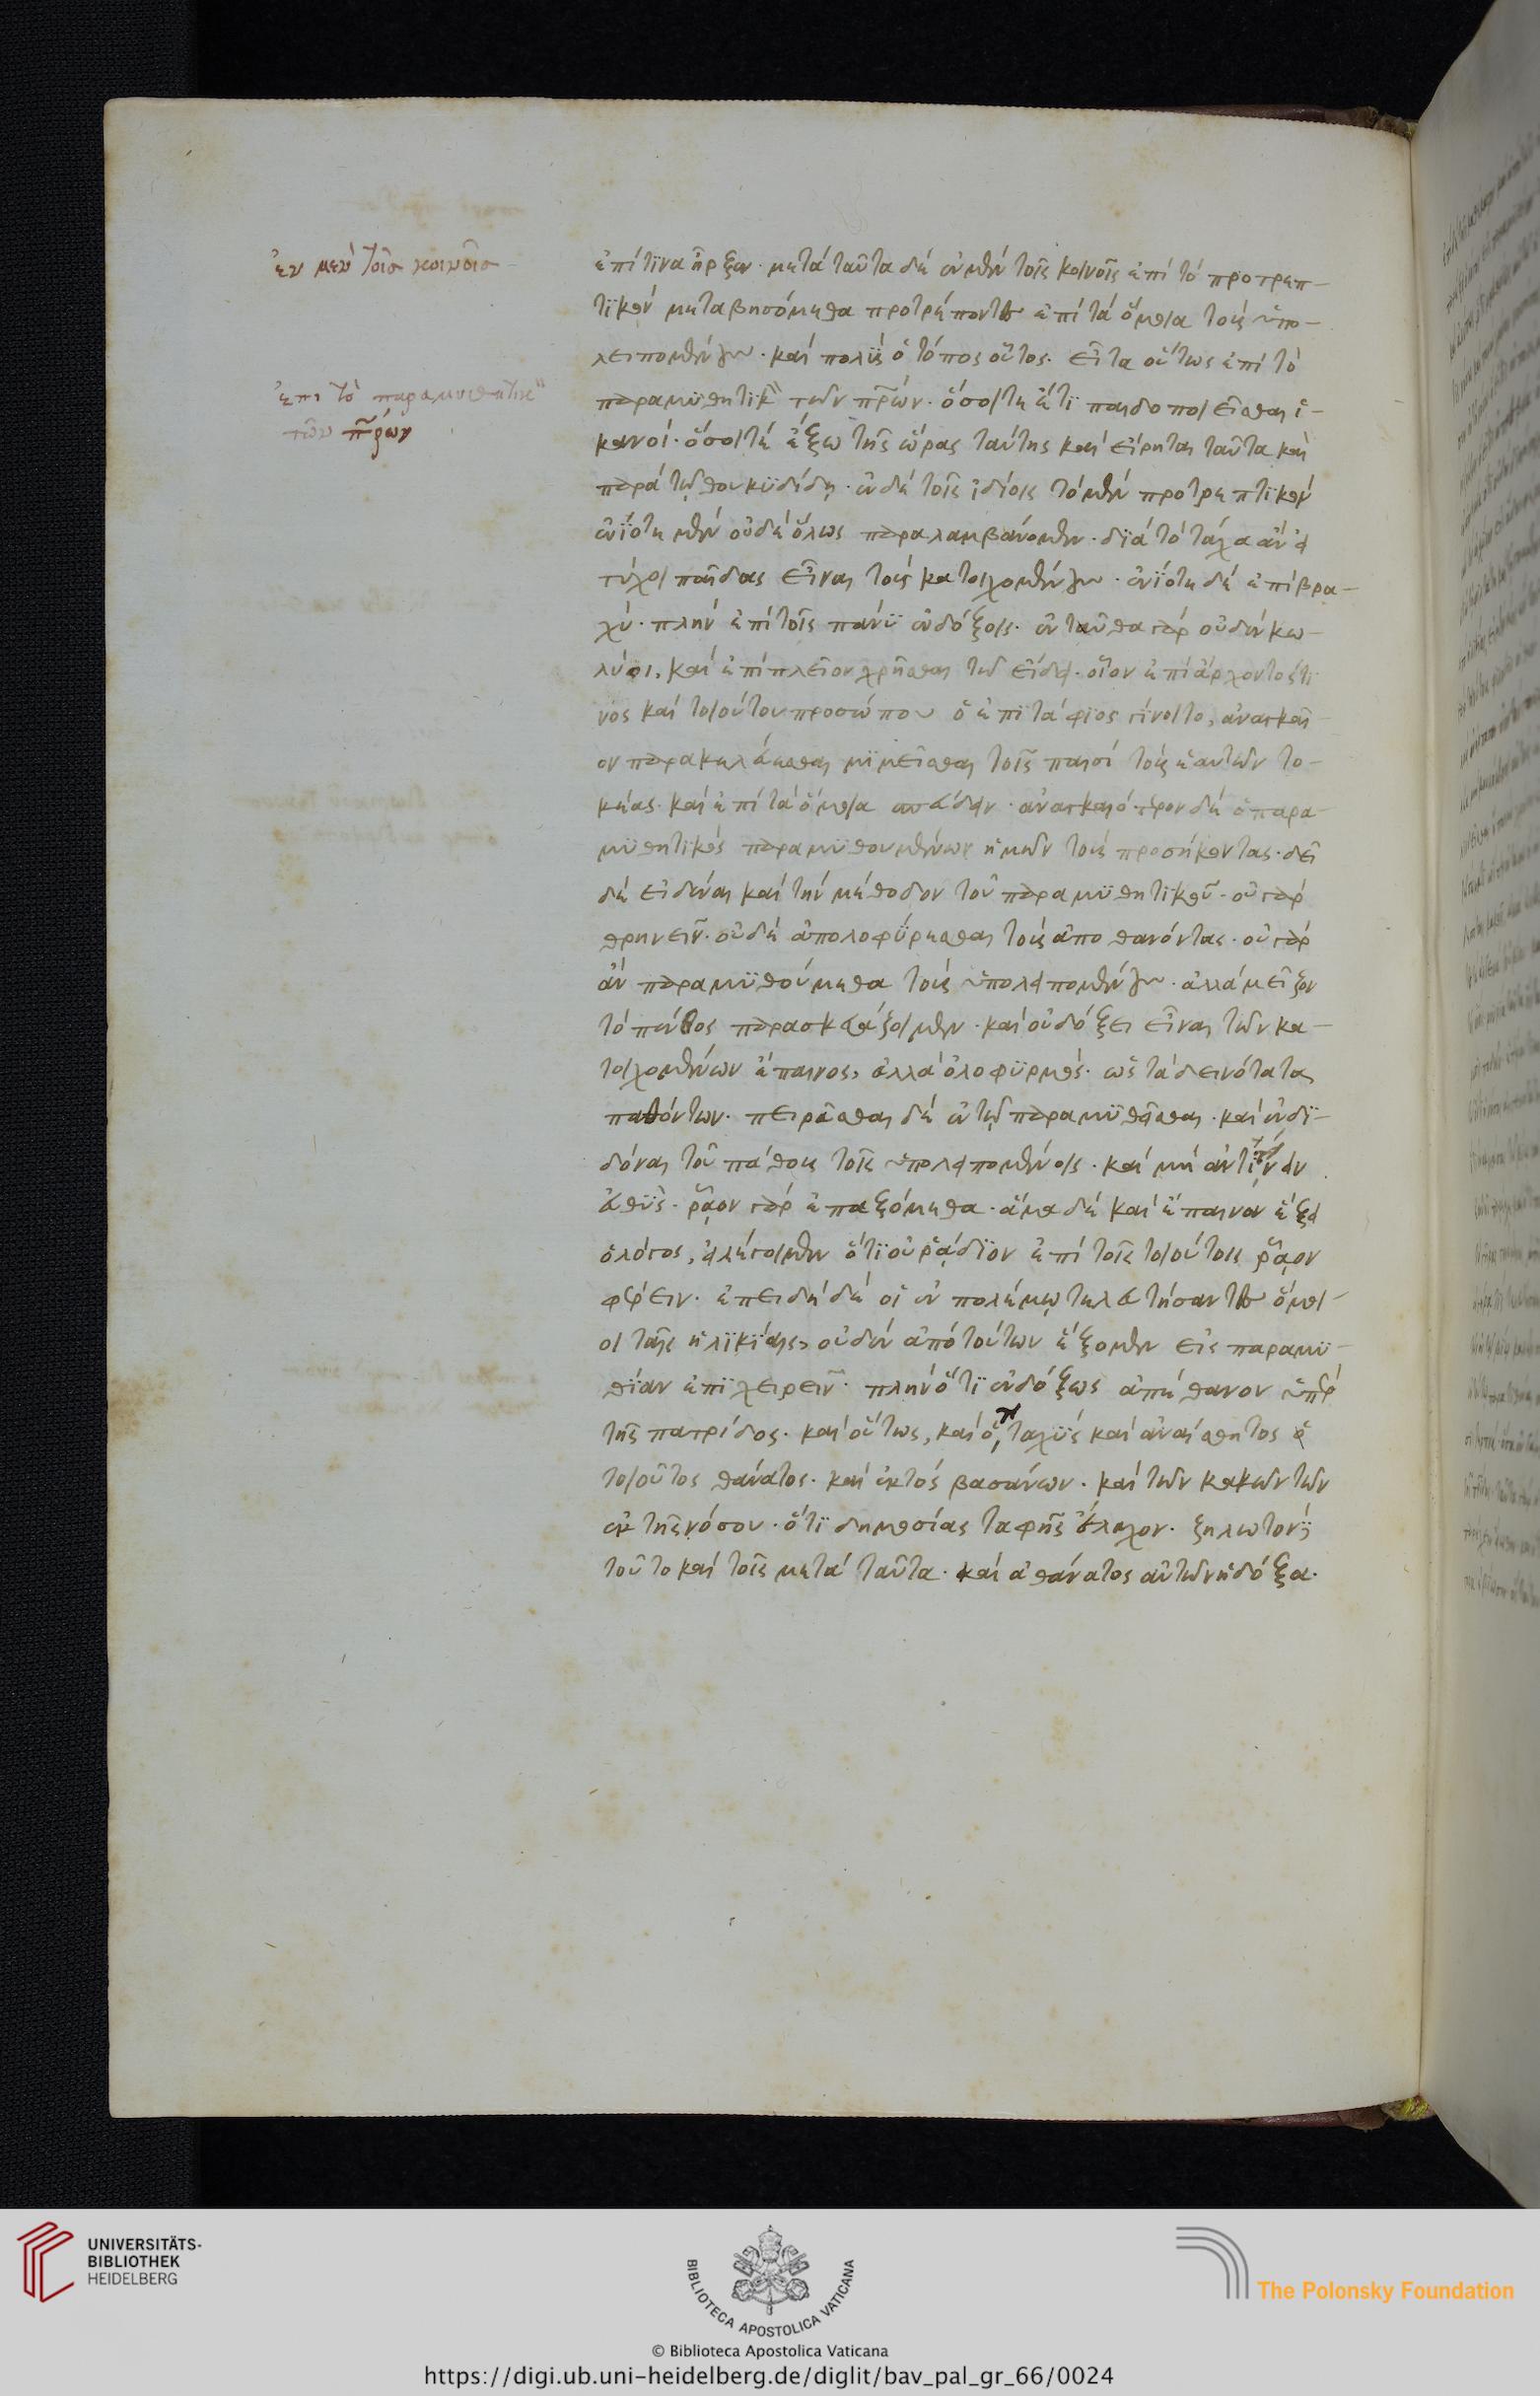 ἐν μὲν τοῖσ κοινοῖσ
ἐπὶ τὸ παραμυθητικ
τῶν π̅ρ̅ων
ἐπί τϊνα ἦρξαν. μετὰ ταῦτα δὲ ἐν μὲν τοῖς κοινοῖς ἐπὶ τὸ προτρεπ-
τϊκὸν μεταβησόμεθα προτρέποντες ἐπὶ τὰ ὅμοια τοὺς ὑπο-
λειπομένους. καὶ πολϋς ὁ τόπος οὗτος. εἶτα οὕτως ἐπὶ τὸ
παραμϋθητϊκ τῶν π̅ρ̅ων. ὅσοι τε ἔτϊ παιδοποιεῖσθαι ἱ-
κανοί. ὅσοι τὲ ἔξω τῆς ὥρας ταύτης καὶ εἴρηται ταῦτα καὶ
παρὰ τῷ θουκϋδίδῃ. ἐν δὲ τοῖς ἰδίοις τὸ μὲν προτρεπτϊκὸν
ἐνΐοτε μὲν οὐδὲ ὅλως παραλαμβάνομεν. δϊὰ τὸ τάχα ἂν εἰ
τύχοι παῖδας εἶναι τοὺς κατοιχομένους. ἐνΐοτε δὲ ἐπὶ βρα-
χύ. πλὴν ἐπὶ τοῖς πάνϋ ἐνδόξοις. ἐνταῦθα γὰρ οὐδὲν κω-
λύει, καὶ ἐπὶ πλεῖον χρῆσθαι τῷ εἴδει. οἷον ἐπὶ ἄρχοντός τϊ
νος καὶ τοιούτου προσώπου ὁ ἐπϊτάφϊος γίνοιτο, ἀναγκαῖ-
ον παρακελεύεσθαι μϊμεῖσθαι τοῖς παισὶ τοὺς ἑαυτῶν το-
κέας. καὶ ἐπὶ τὰ ὅμοια σπεύδειν. ἀναγκαιότερον δὲ ὁ παρα-
μϋθητϊκὸς παραμϋθουμένων ἡμῶν τοὺς προσήκοντας. δεῖ
δὲ εἰδέναι καὶ τὴν μέθοδον τοῦ παραμϋθητϊκοῦ. οὐ γὰρ
θρηνεῖν. οὐδὲ ἀπολοφΰρεσθαι τοὺς ἀποθανόντας. οὐ γὰρ
ἂν παραμϋθούμεθα τοὺς ὑπολειπομένους. ἀλλὰ μεῖζον
τὸ πένθος παρασκευάζοιμεν. καὶ οὐ δόξει εἶναι τῶν κα-
τοιχομένων ἔπαινος, ἀλλὰ ὀλοφϋρμός. ὡς τὰ δεινότατα
παθόντων. πειρᾶσθαι δὲ ἐν τῷ παραμϋθεῖσθαι. καὶ ἐνδϊ-
δόναι τοῦ πάθους τοῖς ὑπολειπομένοις. καὶ μὴ ἀντϊτείνειν
εὐθϋς. ῥᾷον γὰρ ἐπαξόμεθα. ἅμα δὲ καὶ ἔπαινον ἕξει
ὁ λόγος, εἰ λέγοιμεν ὅτϊ οὐ ῥᾴδϊον ἐπὶ τοῖς τοιούτοις ῥᾷον
φέρειν. ἐπειδὴ δὲ οἱ ἐν πολέμῳ τελευτήσαντες ὅμοι-
οι ταῖς ἡλϊκϊαις, οὐδὲν ἀπὸ τούτων ἕξομεν εἰς παραμϋ-
θΐαν ἐπϊχειρεῖν. πλὴν ὅτϊ ἐνδόξως ἀπέθανον ὑπὲρ
τῆς πατρίδος. καὶ οὕτως, καὶ ὅτι ταχϋς καὶ ἀναίσθητος ὁ
τοιοῦτος θάνατος. καὶ ἐκτὸς βασάνων. καὶ τῶν κακῶν τῶν
ἐκ τῆς νόσου. ὅτϊ δημοσίας ταφῆς ἔλαχον. ζηλωτὸν
τοῦτο καὶ τοῖς μετὰ ταῦτα. καὶ ἀθάνατος αὐτῶν ἡ δόξα.
UNIVERSITÄTS-
BIBLIOTHEK
HEIDELBERG
BIBLIOTECA APOSTOLICA VATICANA
© Biblioteca Apostolica Vaticana
The Polonsky Foundation
https://digi.ub.uni-heidelberg.de/diglit/bav_pal_gr_66/0024